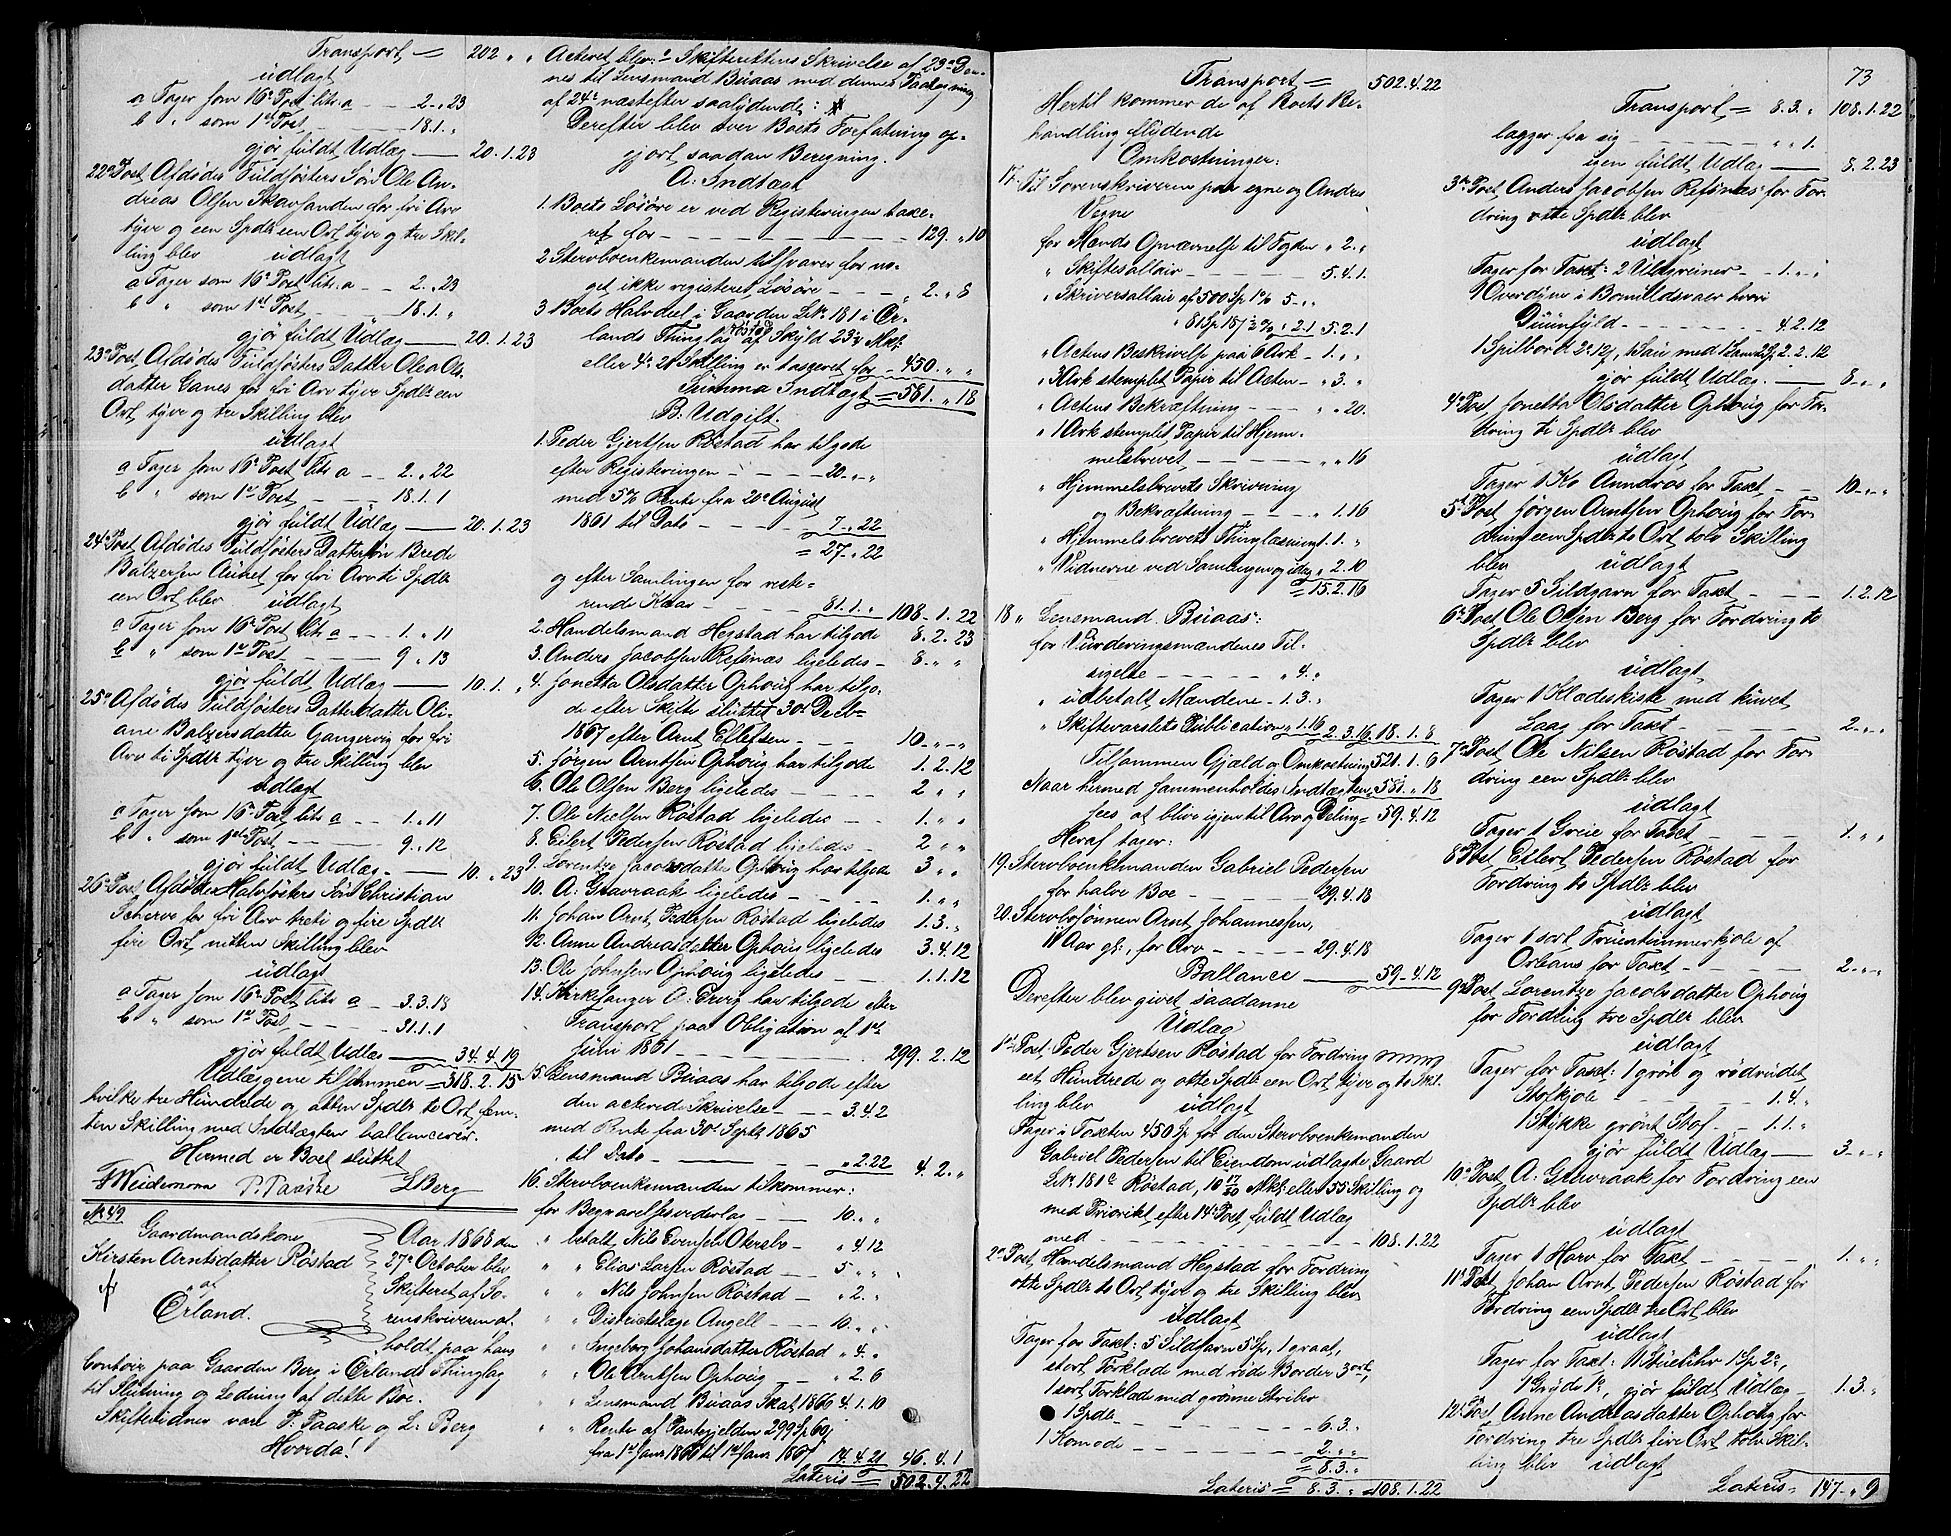 Transport = 202 " "
udlagt
a Tager som 16de Post litr. a — — 2. " 23
b " som 1ste Post, — — 18. 1. "
gjør fuldt Udlæg — 20. 1. 23
22de Post, Afdødes Fuldsøsters Søn Ole An-
dreas Olsen Skavlanden for fri Arv
tyve og een Spdlr een Ort tyve og tre Skil-
ling blev udlagt
a Tager som 16de Post litr. a — — 2. " 23
b " som 1ste Post, — — 18. 1. "
gjør fuldt Udlæg — 20. 1. 23
23de Post, Afdødes Fuldsøsters Datter Olea Ols-
datter Ganes for fri Arv tyve Spdlr een
Ort tyve og tre Skilling blev
udlagt
a Tager som 16de Post litr. a — — 2. " 22
b " som 1ste Post, — — 18. 1. 1
gjør fuldt Udlæg — 20. 1. 23
24de Post, Afdødes Fuldsøsters Dattersøn Brede
Balzersen Aunet for fri Arv ti Spdlr
een Ort blev udlagt
a Tager som 16de Post litr. a — — 1. " 11
b " som 1ste Post — — 9 " 13
gjør fuldt Udlæg — 10. 1. "
25de Afdødes Fuldsøsters Datterdatter Oli-
ane Balzersdatter Gangervig for fri
Arv ti Spdlr tyve og tre Skilling blev
udlagt
a Tager som 16de Post litr. a — — 1. " 11
b " som 1ste Post, — — 9 " 12
gjør fuldt Udlæg — 10. " 23
26de Post, Afdødes Halvsøsters Søn Christian
Scherve for fri Arv treti og fire Spdlr
fire Ort nitten Skilling blev
udlagt
a Tager som 16de Post litr. a — 3. 3. 18
b " som 1ste Post, — — 31. 1. 1
gjør fuldt Udlæg — 34. 4. 19
Udlæggene tilsammen = 318. 2. 15
hvilke tre Hundrede og atten Spdlr to Ort fem-
ten Skilling med Indtægten ballancerer.
Hermed er Boet sluttet
Weidemann P. Paaske L Berg
No 49
Gaardmandskone
Kirsten Arntsdatter Røstad
af
Ørland.
Aar 1868 den
27de October blev
Skifteret af So-
renskriveren af-
holdt paa hans
Contoir paa Gaarden Berg i Ørlands Thinglag
til Slutning og Lodning af dette Boe.
Skiftevidner vare P. Paaske og L. Berg
Hvorda!
Acteret blev: Skifterettens Skrivelse af 23de Den-
nes til Lensmand Büaas med dennes Paategning
af 24de næstefter saalydende:
Derefter blev over Boets Forfatning op-
gjort saadan Beregning.
A. Indtægt
1. Boets Løsøre er ved Registeringen taxe-
ret for — — 129. " 10
2 Stervboenkemanden tilsvarer for no-
get ikke registeret Løsøre — — 2. " 8
3. Boets Halvdeel i Gaarden Lbr. 181 i Ør-
lands Thinglag Røstad af Skyld
eller Skilling er taxeret for — 450. " "
Summa Indtægt = 581. " 18
B. Udgift
1. Peder Gjertsen Røstad har tilgode
efter Registeringen — — 20. " "
med 5% Rente fra 20de August
1861 til Dato — — 7. " 22
= 27. " 22
og efter Samlingen for reste-
rende Kaar — — 81. 1. " 108. 1. 22
2. Handelsmand Hegstad har tilgode 8. 2. 23
3. Anders Jacobsen Refsnæs ligeledes — 8. " "
4. Jonetta Olsdatter Ophoug har tilgo-
de efter Skifte sluttet 30te Decbr
1867 efter Arnt Ellefsen — 10. " "
5. Jørgen Arntsen Ophoug har tilgode 1. 2. 12
6. Ole Olsen Berg ligeledes — — 2 " "
7. Ole Nielsen Røstad ligeledes — — 1. " "
8. Eilert Pedersen Røstad ligeledes — 2 " "
9. Lorentze Jacobsdatter Ophoug har tilgode 3 " "
10. A. Gravraak ligeledes — — 1. " "
11. Johan Arnt Pedersen Røstad ligeledes 1. 3. "
12. Anne Andreasdatter Ophoug ligeledes 3. 4. 12
13. Ole Johnsen Ophoug ligeledes — — 1. 1. 12
14. Kirkesanger O. Ervig har tilgode efter
Transport paa Obligation af 1ste
Juni 1861 — — 299. 2. 12
15. Lensmand Büaas har tilgode efter
den acterede Skrivelse — — 3. 4. 2
med Rente fra 30te Septbr 1865
til Dato — — " 2. 22 4. 2. "
16. Stervboenkemanden tilkommer:
for Begravelsesvederlag — — 10. " "
" betalt Nils Evensen Otersbo — " 4. 12
" " Elias Larsen Røstad — — 5 " "
" " Nils Johnsen Røstad — " 2. "
" " Districtslæge Angell — — 10. " "
" " Ingeborg Johansdatter Røstad " 4. "
" " Ole Arntsen Ophoug — — " 2. 6
" " Lensmand Büaas Skat 1866 4. 1. 10
" " Rente af Pantegjelden 299 Sp 60
fra 1ste Janr 1866 til 1ste Janr 1867 14. 4. 21 46. 4. 1
Lateris = 502. 4. 22
Transport = 502. 4. 22
Hertil kommer de af Boets Be-
handling flydende
Omkostninger:
17. Til Sorenskriveren paa egne og Andres
Vegne
for Mænds Opnævnelse til Fogden " 2. "
" Skiftesallair — — 5. 4. 1.
" Skriversallair af 500 Sp 1% 5. " "
" 81 Sp 18 ½% " 2. 1 5. 2. 1
" Actens Beskrivelse paa 6 Ark — 1. " "
" 3 Ark stemplet Papir til Acten — " 3. "
" Actens Bekræftning — — " " 20.
" 1 Ark stemplet Papir til Hjem-
melsbrevet — — " " 16
" Hjemmelsbrevets Skrivning
og Bekræftning — — " 1. 16
" Hjemmelsbrevets Thinglæsning 1. 1. "
" Vidnerne ved Samlingen og idag " 2. 10
= 15. 2. 16
18 " Lensmand Büaas:
for Vurderingsmændenes Til-
sigelse — — " 4. "
" udbetalt Mændene — 1. 3. "
" Skiftevarslets Publication " 1. 16 2. 3. 16 18. 1. 8
Tilsammen Gjæld og Omkostning 521. 1. 6
Naar hermed sammenholdes Indtægten 581. " 18
sees at blive igjen til Arv og Deling = 59. 4. 12
Heraf tager:
19. Stervboenkemanden Gabriel Pedersen
for halve Boe — — 29. 4. 18
20. Stervbosønnen Arnt Johannessen,
11 Aar gl., for Arv — — 29. 4. 18
Ballance — 59. 4. 12
Derefter blev givet saadanne
Udlæg
1ste Post, Peder Gjertsen Røstad for Fordring
eet Hundrede og otte Spdlr een Ort tyve og to Skil-
ling blev udlagt
Tager i Taxten 450 Sp for den Stervboenkemanden
Gabriel Pedersen til Eiendom udlagte Gaard
Lbr. 181 Røstad, eller 55 Skilling og
med Prioritet efter 14de Post, fuldt Udlæg
med — — 108. 1. 22
2de Post, Handelsmand Hegstad for Fordring
otte Spdlr to Ort tyve og tre Skilling blev
udlagt
Tager for Taxt: 5 Sildgarn 5 Sp, 1 graat,
stort Tørklæde med røde Border 3 ort,
1 sort Tørklæde med grønne Striber
1 Spdlr — — 6. 3. "
1 Komode — — 2. " "
= 8. 3. "
Lateris = 8. 3. " = 108. 1. 22
73
Transport = 8. 3. " 108. 1. 22
lægger fra sig — — " " 1.
igen fuldt Udlæg — 8. 2. 23
3die Post, Anders Jacobsen Refsnæs for For-
dring otte Spdlr blev
udlagt
Tager for Taxt: 2 Uldgreiner — 1. " "
1 Overdyne i Bomuldsvaer hvori
Duunfyld — — 4. 2. 12
1 Spilbord 2. 12, 1 Sau med 1 Lam 2 Sp 2. 2. 12
gjør fuldt Udlæg. — 8. " "
4de Post, Jonetta Olsdatter Ophoug for For-
dring ti Spdlr blev
udlagt
Tager 1 Ko Anndros for Taxt, — — 10. " "
5te Post, Jørgen Arntsen Ophoug for For-
dring een Spdlr to Ort tolv Skilling
blev udlagt
Tager 5 Sildgarn for Taxt — — 1. 2. 12
6te Post, Ole Olsen Berg for Fordring to
Spdlr blev
udlagt
Tager 1 Klædeskiste med kuvet
Laag for Taxt — — 2. " "
7de Post, Ole Nilsen Røstad for For-
dring een Spdlr blev
udlagt
Tager 1 Greie for Taxt, — — 1. " "
8de Post, Eilert Pedersen Røstad for
Fordring to Spdlr blev
udlagt
Tager 1 sort Fruentimmerkjole af
Orleans for Taxt — — 2. " "
9de Post, Lorentze Jacobsdatter Ophoug
for Fordring tre Spdlr blev
udlagt
Tager for Taxt: 1 grøn og rødrudet
Stofkjole — — 1. 4. "
1 Stykke grønt Stof — — 1. 1. "
gjør fuldt Udlæg — 3. " "
10de Post, A. Gravraak for Fordring een
Spdlr blev
udlagt
Tager 1 Harv for Taxt — — 1. " "
11te Post, Johan Arnt Pedersen Røstad for
Fordring een Spdlr tre Ort blev
udlagt
Tager for Taxt: 1 Stueuhr 1 Sp 2,
1 Gryde 1, gjør fuldt Udlæg — 1. 3. "
12te Post, Anne Andreasdatter Ophoug for
Fordring tre Spdlr fire Ort tolv Skil-
ling blev udlagt
Lateris = 147 " 9